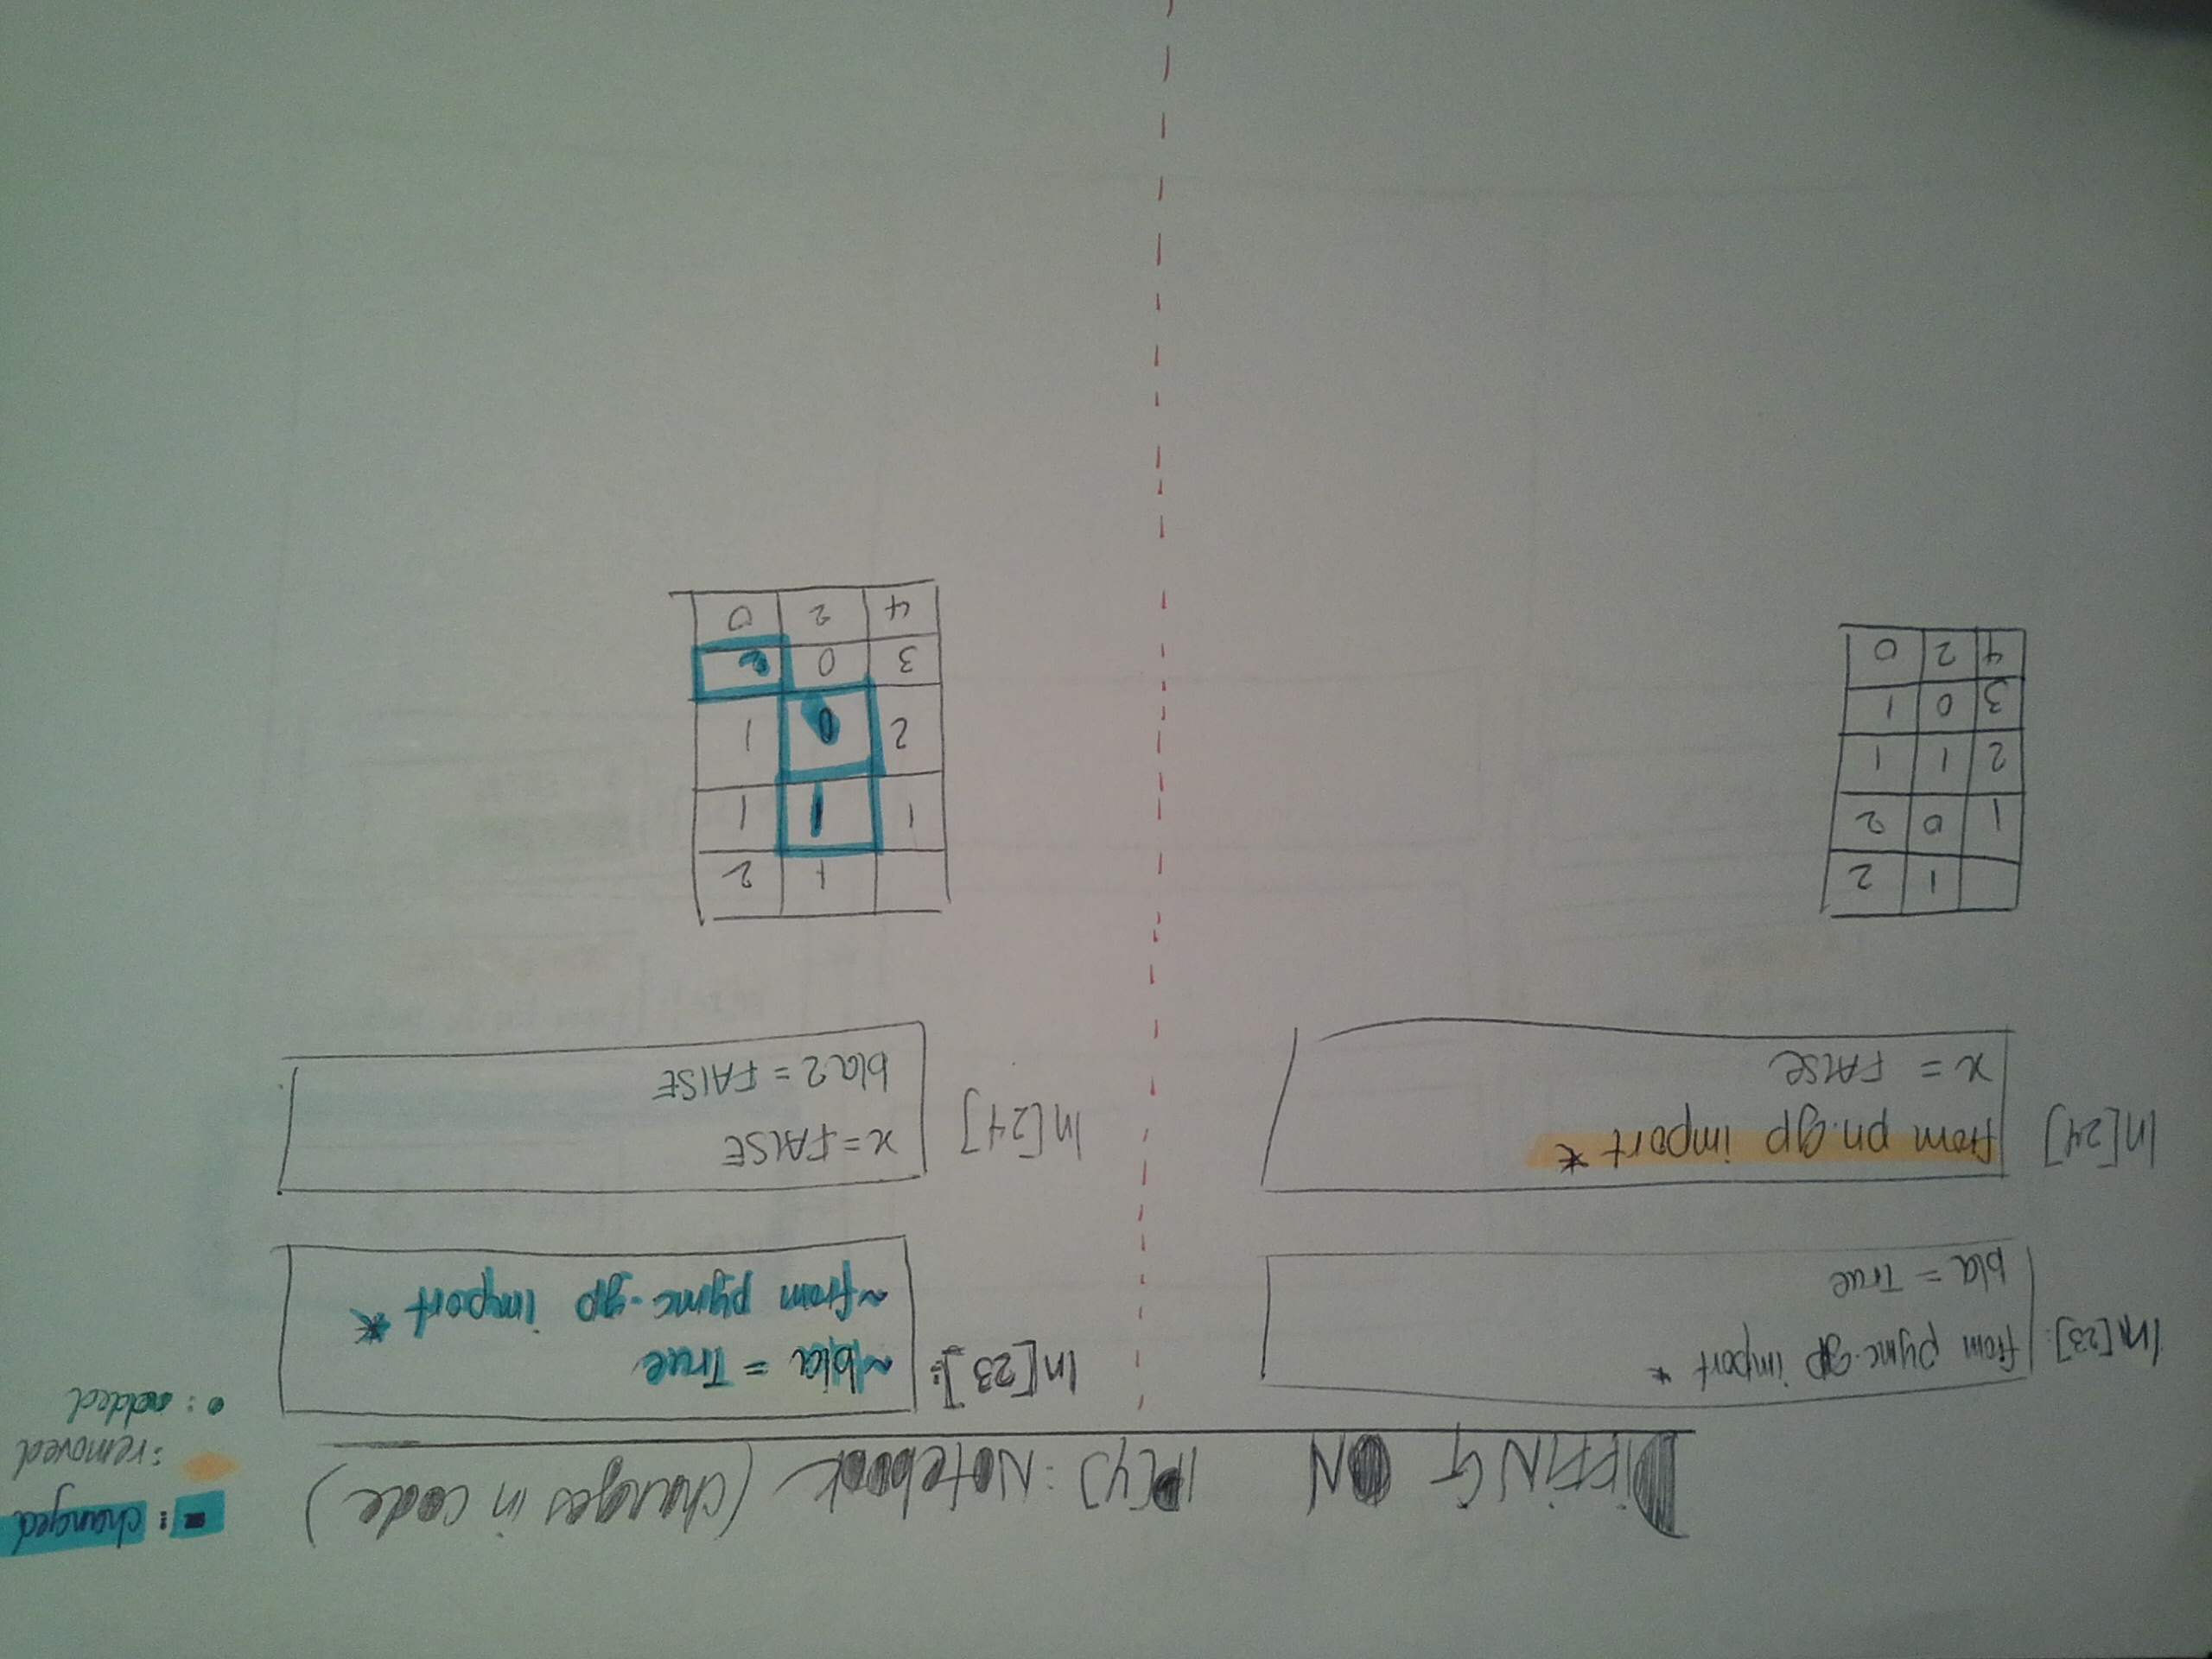 DIFFING ON IP[y]: Notebook (changes in code)
~: changed
: removed
o: added
In[23]:
from pymc.gp import *
bla = True
In[24]
from pn.gp import *
x = FAlSe
1 2
1 0 2
2 1 1
3 0 1
4 2 0
In[23]:
~bla = True
~from pymc.gp import *
In[24]
x = FAlSE
bla2 = FAlSE
1 2
1 1 1
2 0 1
3 0 2
4 2 0